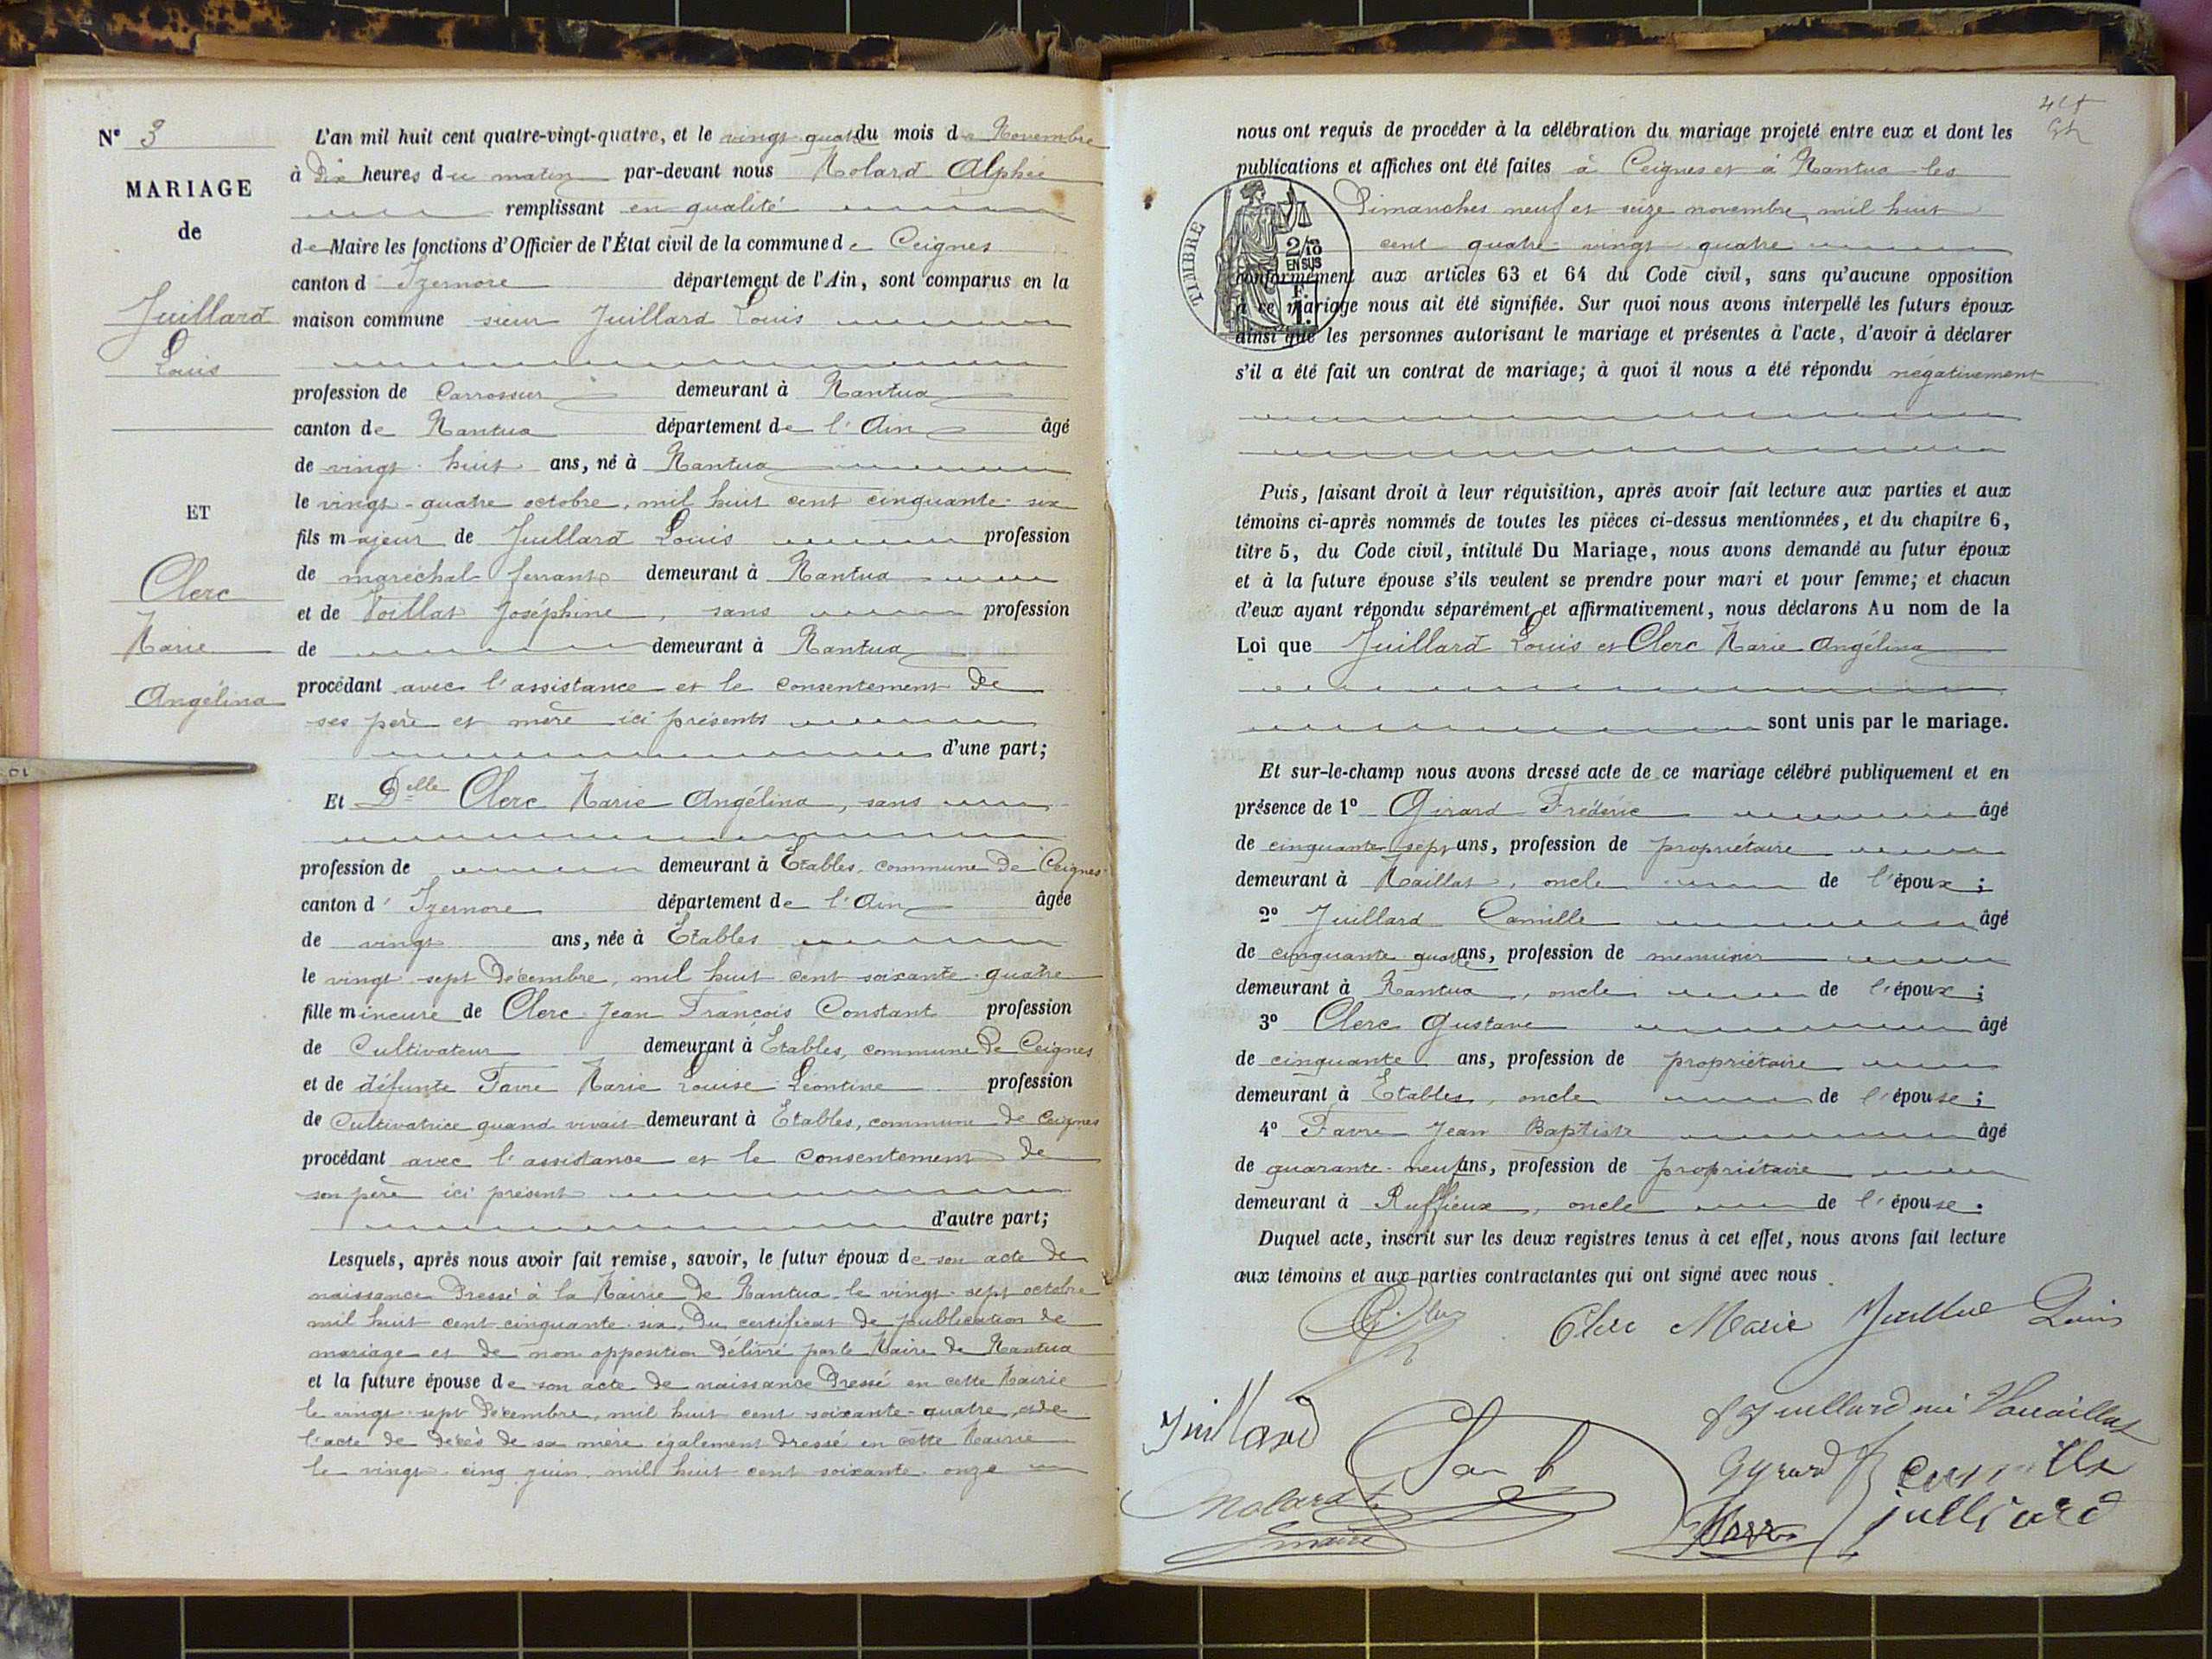 N° 3
MARIAGE
de
Juillard
Louis
ET
Clerc
Marie
Angélina
L'an mil huit cent quatre-vingt-quatre, et le vingt quatre du mois de Novembre
à Dix heures du matin par-devant nous Molard Alphée
remplissant en qualité
de Maire les fonctions d'Officier de l'État civil de la commune de Ceignes
canton d'Izernore département de l'Ain, sont comparus en la
maison commune sieur Juillard Louis
profession de Carrossier demeurant à Nantua
canton de Nantua département de l'Ain âgé
de vingt-huit ans, né à Nantua
le vingt-quatre octobre, mil huit cent cinquante-six
fils majeur de Juillard Louis profession
de maréchal ferrant demeurant à Nantua
et de Joséphine, sans profession
de demeurant à Nantua
procédant avec l'assistance et le consentement de
ses père et mère ici présents
d'une part;
Et Delle Clerc Marie Angélina, sans
profession de demeurant à Etables, commune de Ceignes
canton d'Izernore département de l'Ain âgée
de vingt ans, née à Etables
le vingt-sept Décembre, mil huit cent soixante-quatre
fille mineure de Clerc Jean François Constant profession
de Cultivateur demeurant à Etables, commune de Ceignes
et de défunte Favre Marie Louise Léontine profession
de Cultivatrice quand vivait demeurant à Etables, commune de Ceignes
procédant avec l'assistance et le consentement de
son père ici présent
d'autre part;
Lesquels, après nous avoir fait remise, savoir, le futur époux de son acte de
naissance Dressé à la Mairie de Nantua le vingt-sept octobre
mil huit cent cinquante-six, Du certificat de publication de
mariage et de non opposition Délivré par le Maire de Nantua
et la future épouse de son acte de naissance Dressé en cette Mairie
le vingt-sept Décembre, mil huit cent soixante-quatre, et de
l'acte de décès de sa mère également dressé en cette Mairie
le vingt-cinq juin mil huit cent soixante-onze
nous ont requis de procéder à la célébration du mariage projeté entre eux et dont les
publications et affiches ont été faites à Ceignes et à Nantua les
Dimanches neuf et seize novembre, mil huit
cent quatre-vingt-quatre
TIMBRE
2/10
EN SUS
conformément aux articles 63 et 64 du Code civil, sans qu'aucune opposition
à ce mariage nous ait été signifiée. Sur quoi nous avons interpellé les futurs époux
ainsi que les personnes autorisant le mariage et présentes à l'acte, d'avoir à déclarer
s'il a été fait un contrat de mariage; à quoi il nous a été répondu négativement
Puis, faisant droit à leur réquisition, après avoir fait lecture aux parties et aux
témoins ci-après nommés de toutes les pièces ci-dessus mentionnées, et du chapitre 6,
titre 5, du Code civil, intitulé Du Mariage, nous avons demandé au futur époux
et à la future épouse s'ils veulent se prendre pour mari et pour femme; et chacun
d'eux ayant répondu séparément et affirmativement, nous déclarons Au nom de la
Loi que Juillard Louis et Clerc Marie Angélina
sont unis par le mariage.
Et sur-le-champ nous avons dressé acte de ce mariage célébré publiquement et en
présence de 1° Girard Frédéric âgé
de cinquante sept ans, profession de propriétaire
demeurant à Maillat, oncle de l'époux;
2° Juillard Camille âgé
de cinquante quatre ans, profession de menuisier
demeurant à Nantua, oncle de l'époux;
3° Clerc Gustave âgé
de cinquante ans, profession de propriétaire
demeurant à Etables, oncle de l'épouse;
4° Favre Jean Baptiste âgé
de quarante-neuf ans, profession de propriétaire
demeurant à Ruffieux, oncle de l'épouse.
Duquel acte, inscrit sur les deux registres tenus à cet effet, nous avons fait lecture
aux témoins et aux parties contractantes qui ont signé avec nous
Clerc Marie Louis
Juillard
Juillard née
Gyrard
camille
juillard
Molard
maire